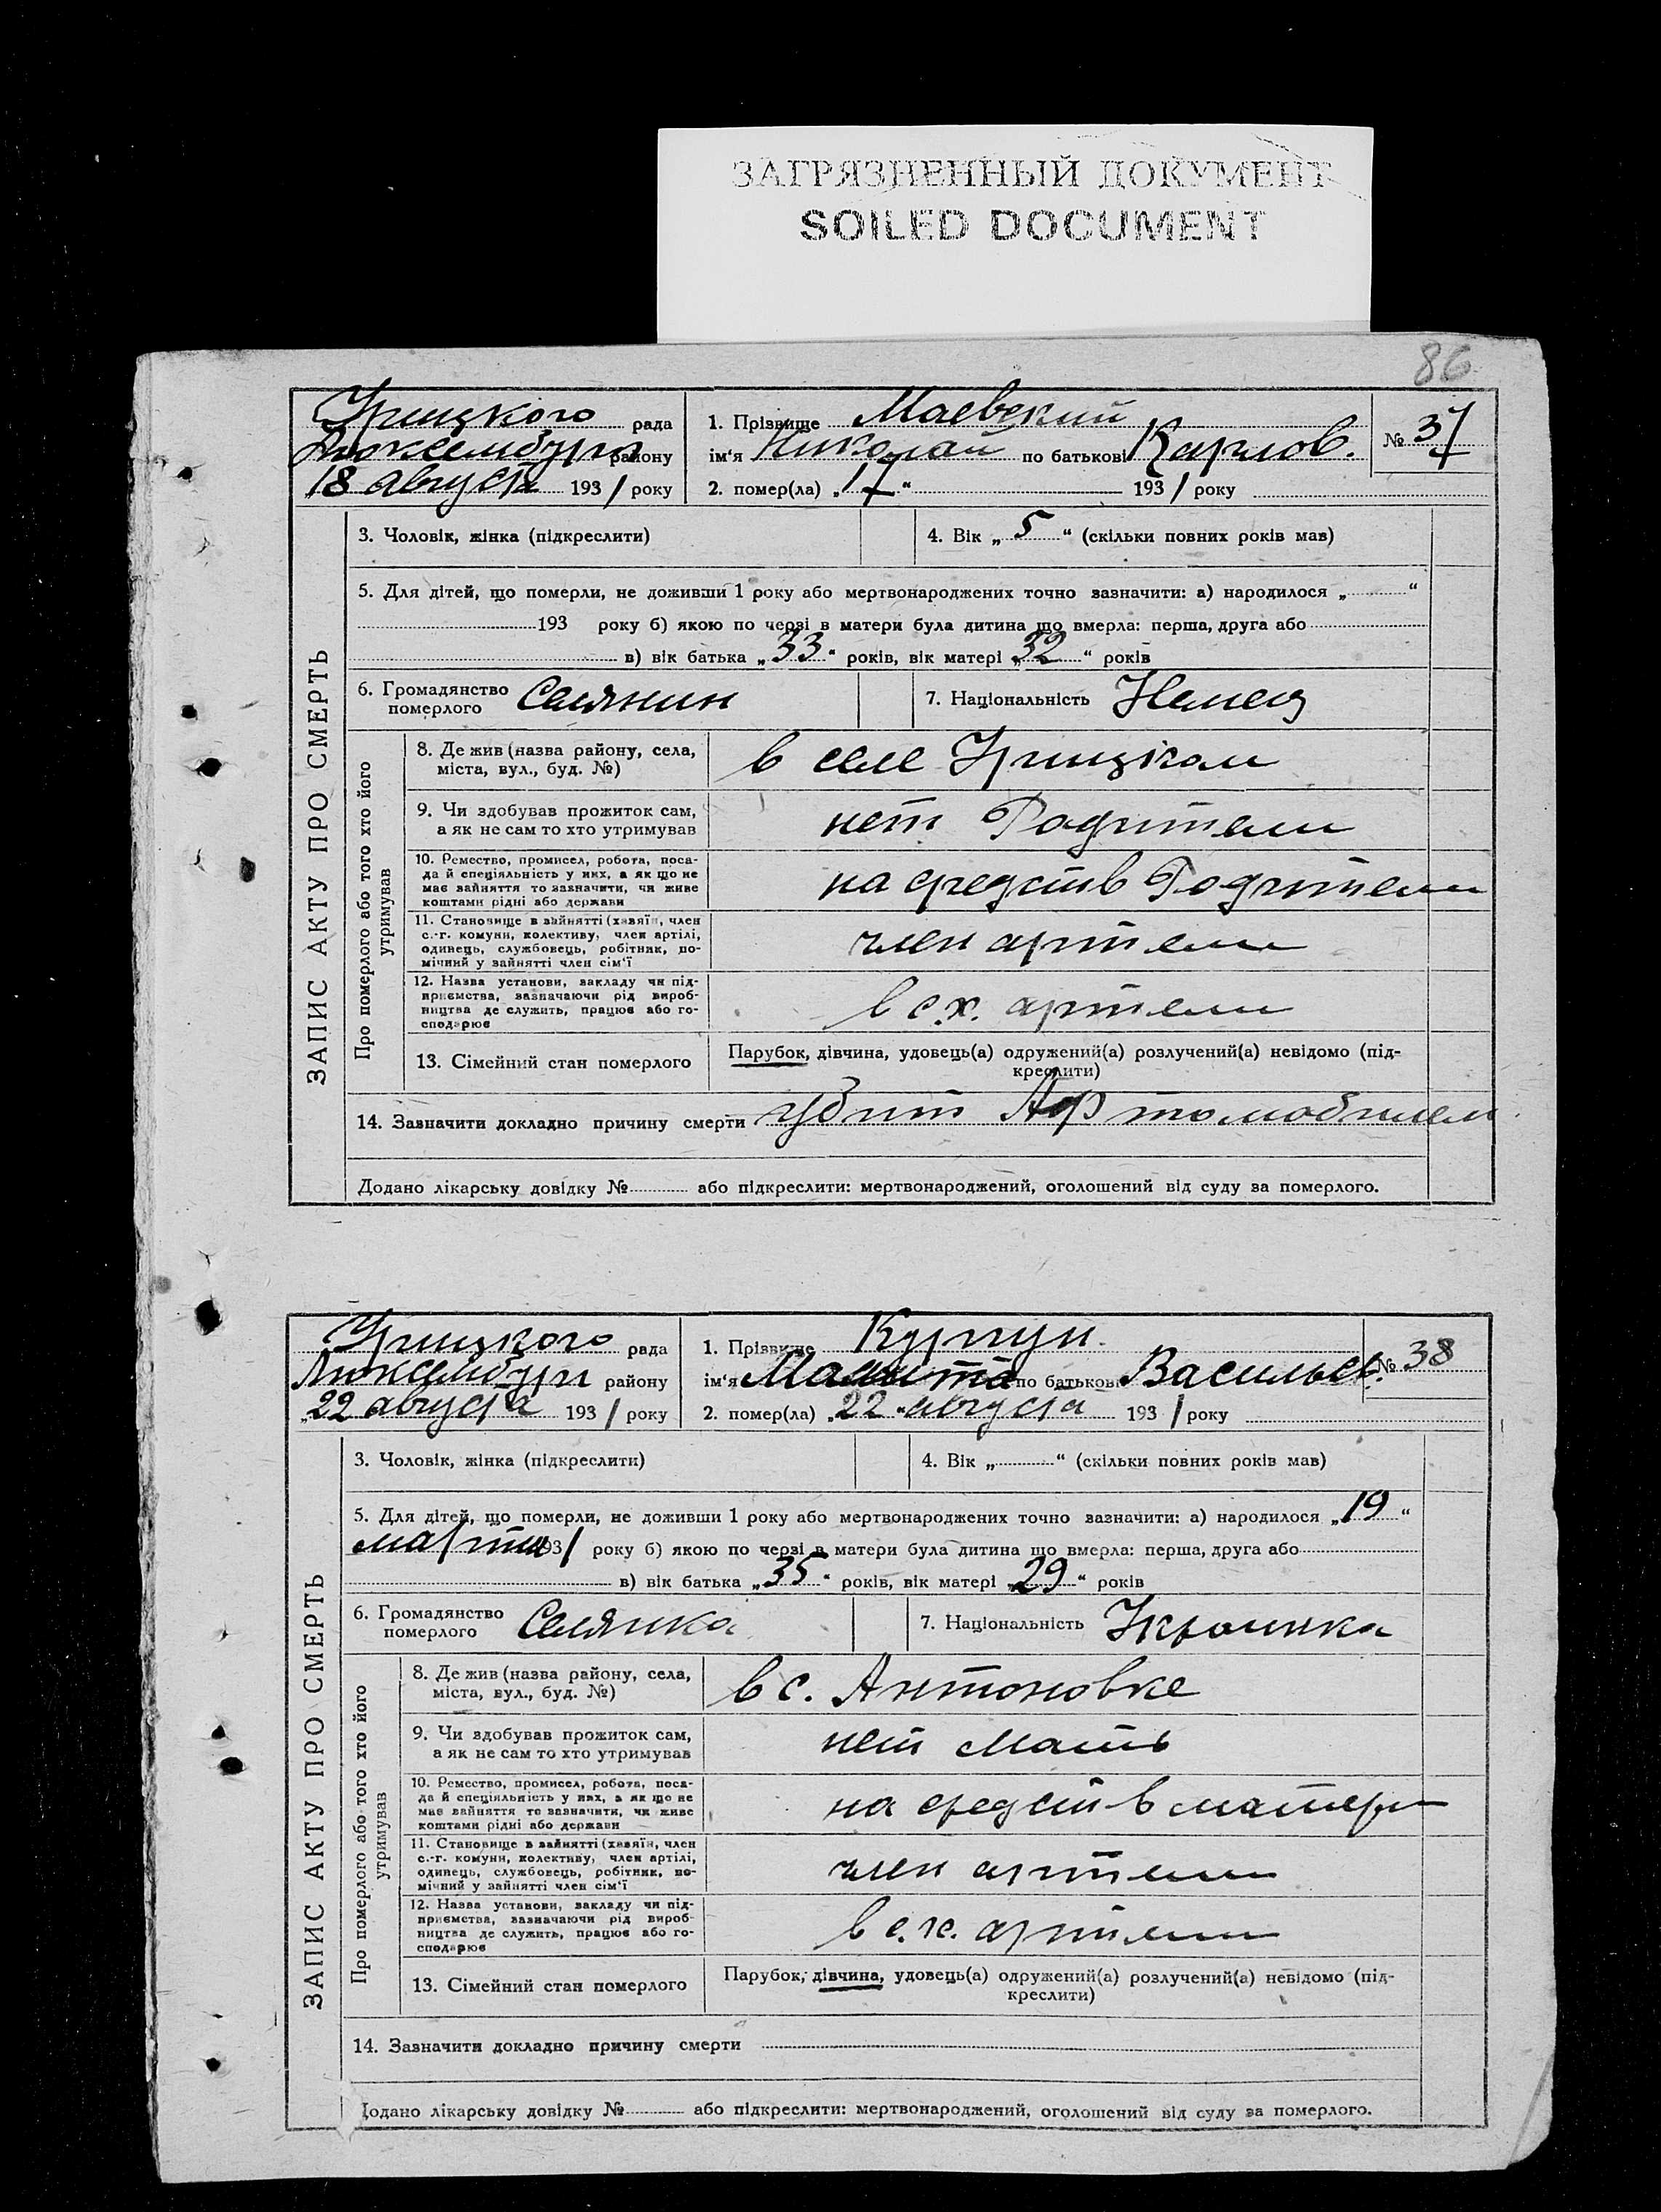 ЗАГРЯЗНЕННЫЙ ДОКУМЕНТ
SOILED DOCUMENT
86
Урицкого рада
Люксембург району
18 августа 1931 року
1. Прізвище Маевский
ім'я Николай по батькові Карлов.
2. помер(ла) „17“ 1931 року
№ 37
ЗАПИС АКТУ ПРО СМЕРТЬ
3. Чоловік, жінка (підкреслити)
4. Вік „5“ (скільки повних років мав)
5. Для дітей, що померли, не доживши 1 року або мертвонароджених точно зазначити: а) народилося „ “
193 року б) якою по черзі в матери була дитина що вмерла: перша, друга або
в) вік батька „33“ років, вік матері „32“ років
6. Громадянство померлого Селянин
7. Національність Немец
Про померлого або того хто його утримував
8. Де жив (назва району, села,
міста, вул., буд. №)
в селе Урицком
9. Чи здобував прожиток сам,
а як не сам то хто утримував
нет Родители
10. Ремество, промисел, робота, поса-
да й спеціяльність у них, а як що не
має зайняття то зазначити, чи живе
коштами рідні або держави
на средств Родители
11. Становище в зайнятті (хазяїн, член
с.-г. комуни, колективу, член артілі,
одинець, службовець, робітник, по-
мічний у зайнятті член сім'ї
член артели
12. Назва установи, закладу чи під-
приємства, зазначаючи рід вироб-
ництва де служить, працює або го-
сподарює
в с.х. артели
13. Сімейний стан померлого
Парубок, дівчина, удовець(а) одружений(а) розлучений(а) невідомо (під-
креслити)
14. Зазначити докладно причину смерти убит
Додано лікарську довідку № або підкреслити: мертвонароджений, оголошений від суду за померлого.
Урицкого рада
Люксембург району
„22 августа 1931 року
1. Прізвище
ім'я по батькові Васильев.
2. помер(ла) „22“ августа 1931 року
№ 38
ЗАПИС АКТУ ПРО СМЕРТЬ
3. Чоловік, жінка (підкреслити)
4. Вік „ “ (скільки повних років мав)
5. Для дітей, що померли, не доживши 1 року або мертвонароджених точно зазначити: а) народилося „19“
марта 1931 року б) якою по черзі в матери була дитина що вмерла: перша, друга або
в) вік батька „35“ років, вік матері „29“ років
6. Громадянство померлого Селянка
7. Національність Украинка
Про померлого або того хто його утримував
8. Де жив (назва району, села,
міста, вул., буд. №)
в с. Антоновке
9. Чи здобував прожиток сам,
а як не сам то хто утримував
нет Мать
10. Ремество, промисел, робота, поса-
да й спеціяльність у них, а як що не
має зайняття то зазначити, чи живе
коштами рідні або держави
на средств матери
11. Становище в зайнятті (хазяїн, член
с.-г. комуни, колективу, член артілі,
одинець, службовець, робітник, по-
мічний у зайнятті член сім'ї
член артели
12. Назва установи, закладу чи під-
приємства, зазначаючи рід вироб-
ництва де служить, працює або го-
сподарює
в с.х. артели
13. Сімейний стан померлого
Парубок, дівчина, удовець(а) одружений(а) розлучений(а) невідомо (під-
креслити)
14. Зазначити докладно причину смерти
Додано лікарську довідку № або підкреслити: мертвонароджений, оголошений від суду за померлого.